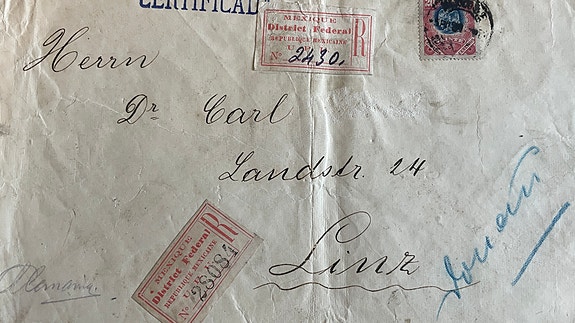 CERTIFICAD
MEXIQUE
District Federal
REPUBLIQUE MEXICAINE
U
R
No 2430.
Herrn
Dr Carl
Landstr. 24
Linz
MEXIQUE
District Federal
REPUBLIQUE MEXICAINE
R
No 28084